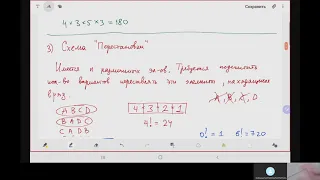 Сохранить
4 × 3 × 5 × 3 = 180
3) Схема "Перестановки"
Имеется n различных эл-ов. Требуется подсчитать
кол-во вариантов переставить эти элементы,
в ряд.
A, B, C, D
A B C D
B A D C
C A D B
4 · 3 · 2 · 1
4! = 24
0! = 1 6! = 720